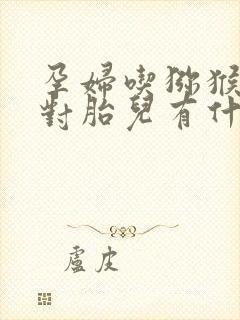 孕婦喫猕猴
對胎兒有什
盧皮